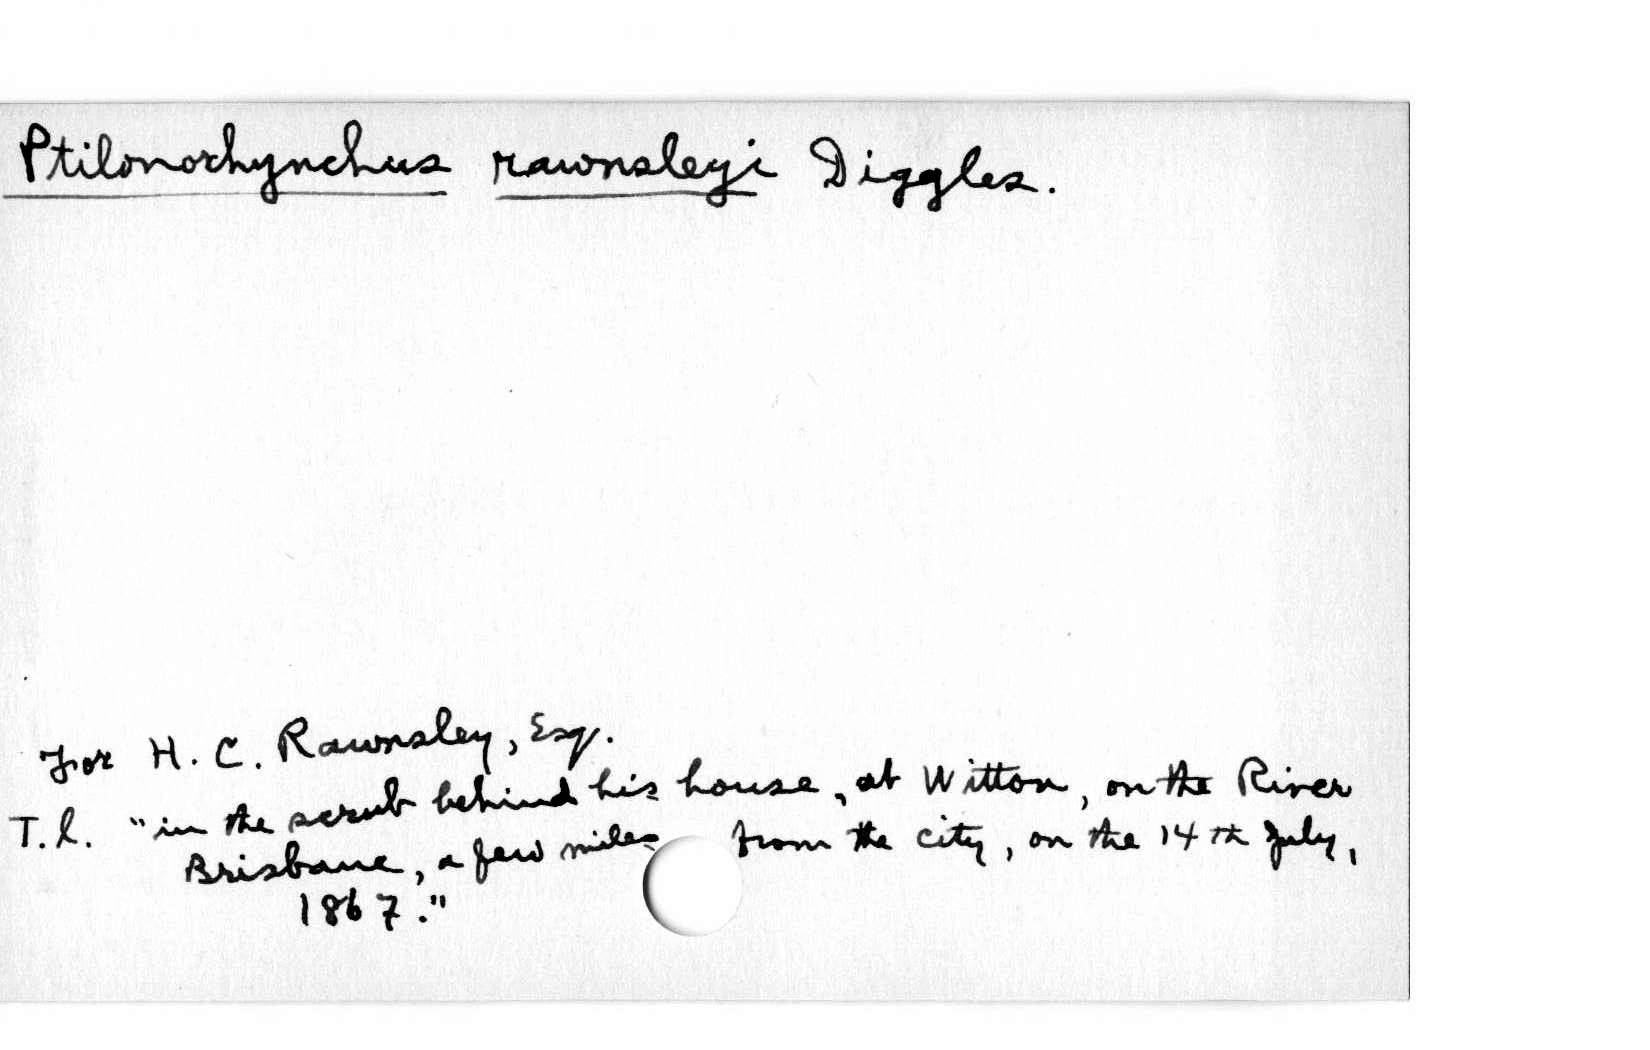 Ptilonorhynchus rawnsleyi Diggles.
For H. C. Rawnsley, Esq.
T.l. "in the scrub behind his house, at Witton, on the River
Brisbane, a few miles from the city, on the 14th July,
1867."